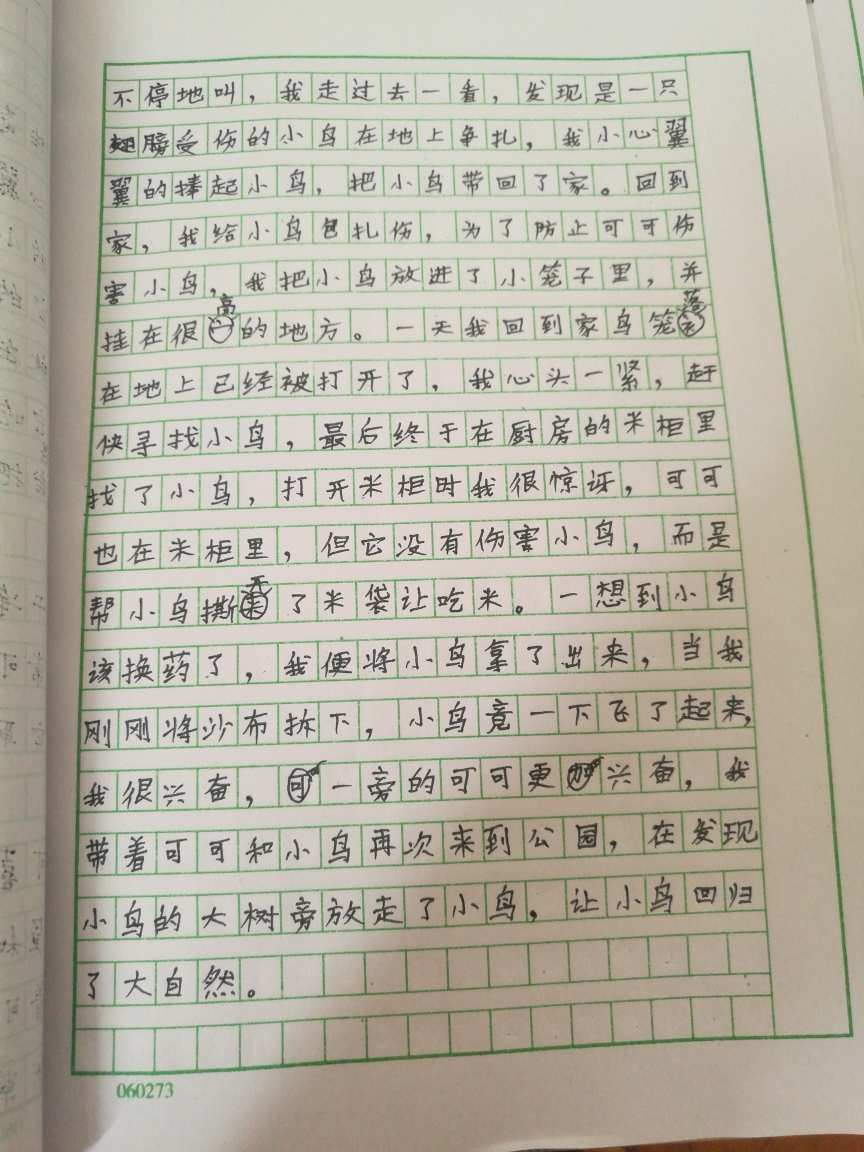 不停地叫，我走过去一看，发现是一只
翅膀受伤的小鸟在地上争扎，我小心翼
翼的捧起小鸟，把小鸟带回了家。回到
家，我给小鸟包扎伤，为了防止可可伤
害小鸟，我把小鸟放进了小笼子里，并
挂在很高的地方。一天我回到家鸟笼落
在地上已经被打开了，我心头一紧，赶
快寻找小鸟，最后终于在厨房的米柜里
找了小鸟，打开米柜时我很惊讶，可可
也在米柜里，但它没有伤害小鸟，而是
帮小鸟撕开了米袋让吃米。一想到小鸟
该换药了，我便将小鸟拿了出来，当我
刚刚将沙布拆下，小鸟竟一下飞了起来，
我很兴奋，一旁的可可更兴奋，我
带着可可和小鸟再次来到公园，在发现
小鸟的大树旁放走了小鸟，让小鸟回归
了大自然。
060273